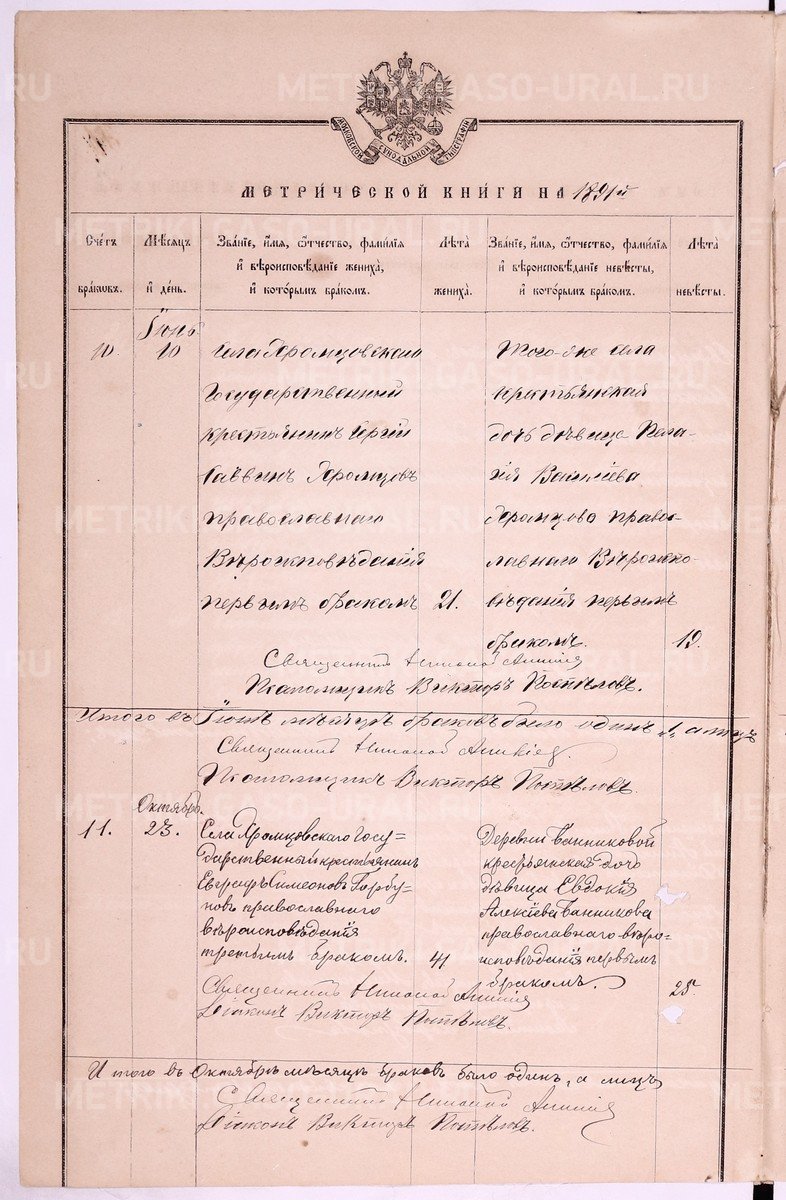 METRIKI.GASO-URAL.RU
МОСКОВСКОЙ СѴНОДАЛЬНОЙ ТИПОГРАФІИ
МЕТРИ́ЧЕСКОЙ КНИ́ГИ НА 1891й
Сче́тъ бра́кωвъ.
Мѣ́сяцъ и де́нь.
Зва́нїе, и́мя, ѻ҆́тчество, фами́лїя и вѣроисповѣ́данїе жениха́, и кото́рымъ бра́комъ.
Лѣ́та жениха́.
Зва́нїе, и́мя, ѻ҆́тчество, фами́лїя и вѣроисповѣ́данїе невѣ́сты, и кото́рымъ бра́комъ.
Лѣ́та невѣ́сты.
Іюнь
10. 10
Села Храмцовскаго
Государственный
крестьянинъ Сергій
Саввинъ Храмцовъ
православнаго
Вѣроисповѣданія
первымъ бракомъ 21.
Того-же села
крестьянская
дочь дѣвица Пела-
гія Васильева
Храмцова право-
славнаго Вѣроиспо-
вѣданія первымъ
бракомъ. 19.
Священникъ Николай
Псаломщикъ Викторъ Поспѣловъ.
Итого въ Іюнѣ мѣсяцѣ браковъ было одинъ „1„ а лицъ
Священникъ Николай
Псаломщикъ Викторъ Поспѣловъ.
Октябрь.
11. 23.
Села Храмцовскаго Госу=
дарственный крестьянинъ
Евграфъ Симеоновъ Горбу=
новъ православнаго
вѣроисповѣданія
третьимъ бракомъ. 41
Деревни Банниковой
крестьянская дочь
дѣвица Евдокія
Алексіева Банникова
православнаго вѣро-
исповѣданія первымъ
бракомъ. 25.
Священникъ Николай
Діаконъ Викторъ Поспѣловъ.
И того въ Октябрѣ мѣсяцѣ браковъ было одинъ, а лицъ
Священникъ Николай
Діаконъ Викторъ Поспѣловъ.